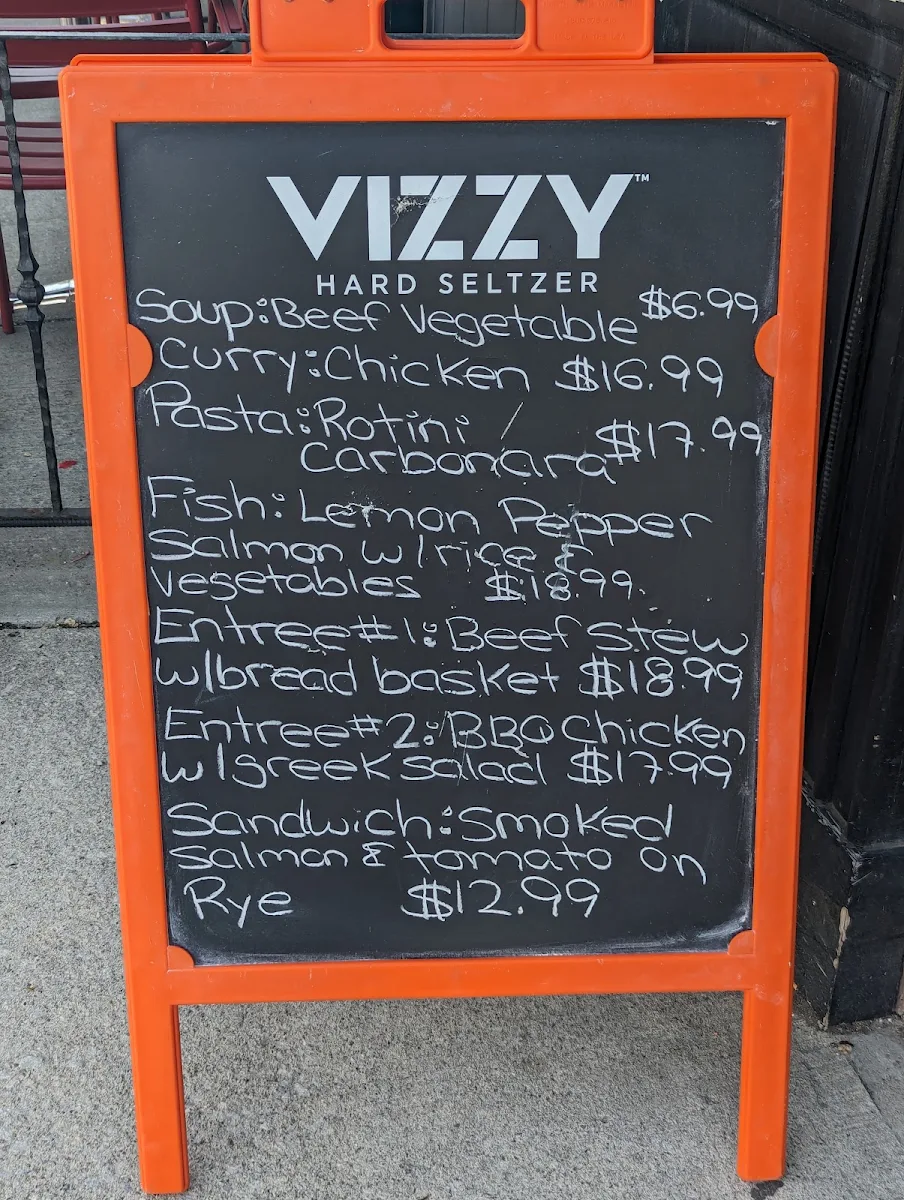 VIZZY™
HARD SELTZER
Soup: Beef Vegetable $6.99
Curry: Chicken $16.99
Pasta: Rotini
Carbonara $17.99
Fish: Lemon Pepper
Salmon w/rice &
vegetables $18.99
Entree #1: Beef Stew
w/bread basket $18.99
Entree #2: BBQ Chicken
w/greek salad $17.99
Sandwich: Smoked
salmon & tomato on
Rye $12.99